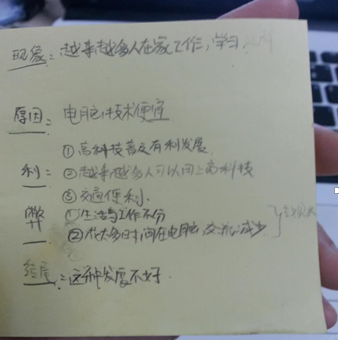 现象：越来越多人在家工作，学习
原因：电脑技术便宜
①高科技普及有利发展
利：②越来越多人可以用上高科技
③交通便利.
弊①生活与工作不分
②花太多时间在电脑，交流减少
结尾：这种发展不好.